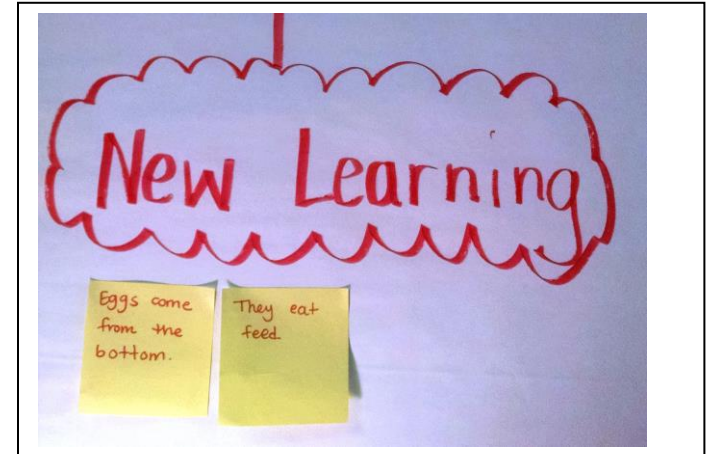 New Learning
Eggs come
from the
bottom.
They eat
feed